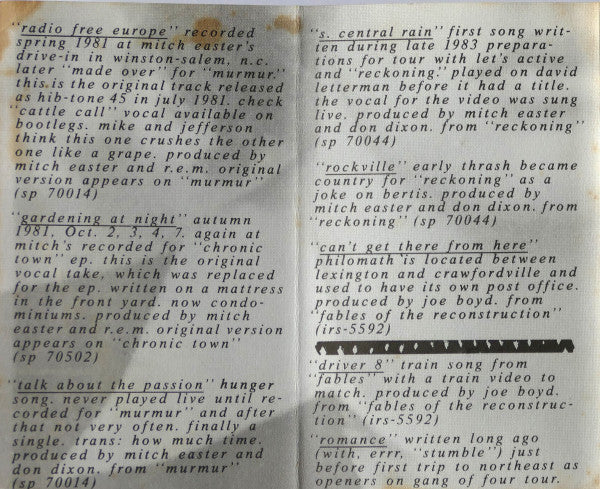 "radio free europe" recorded
spring 1981 at mitch easter's
drive-in in winston-salem, n.c.
later "made over" for "murmur."
this is the original track released
as hib-tone 45 in july 1981. check
"cattle call" vocal available on
bootlegs. mike and jefferson
think this one crushes the other
one like a grape. produced by
mitch easter and r.e.m. original
version appears on "murmur"
(sp 70014)
"gardening at night" autumn
1981. Oct. 2, 3, 4, 7. again at
mitch's recorded for "chronic
town" ep. this is the original
vocal take, which was replaced
for the ep. written on a mattress
in the front yard. now condo-
miniums. produced by mitch
easter and r.e.m. original version
appears on "chronic town"
(sp 70502)
"talk about the passion" hunger
song. never played live until re-
corded for "murmur" and after
that not very often. finally a
single. trans: how much time.
produced by mitch easter and
don dixon. from "murmur"
(sp 70014)
"s. central rain" first song writ-
ten during late 1983 prepara-
tions for tour with let's active
and "reckoning." played on david
letterman before it had a title.
the vocal for the video was sung
live. produced by mitch easter
and don dixon. from "reckoning"
(sp 70044)
"rockville" early thrash became
country for "reckoning" as a
joke on bertis. produced by
mitch easter and don dixon. from
"reckoning" (sp 70044)
"can't get there from here"
philomath is located between
lexington and crawfordville and
used to have its own post office.
produced by joe boyd. from
"fables of the reconstruction"
(irs-5592)
"driver 8" train song from
"fables" with a train video to
match. produced by joe boyd.
from "fables of the reconstruc-
tion" (irs-5592)
"romance" written long ago
(with, errr, "stumble") just
before first trip to northeast as
openers on gang of four tour.